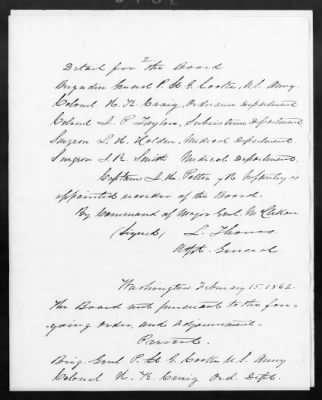 2
Detail for the Board
Brigadier General P. St G. Cooke, U.S. Army
Colonel H. K. Craig, Ordnance Department
Colonel J. P. Taylor, Subsistence Department
Surgeon L. H. Holden, Medical Department
Surgeon J. R. Smith Medical Department.
Captain J. H. Potter 7th Infantry is
appointed recorder of the Board.
By Command of Major Genl McClellan
(Signed) L. Thomas
Adjt. General
Washington February 15. 1862.
The Board met pursuant to the fore-
going order, and adjourned.
Present.
Brig. Genl P. St G. Cooke U.S. Army
Colonel H. K. Craig Ord. Dept.